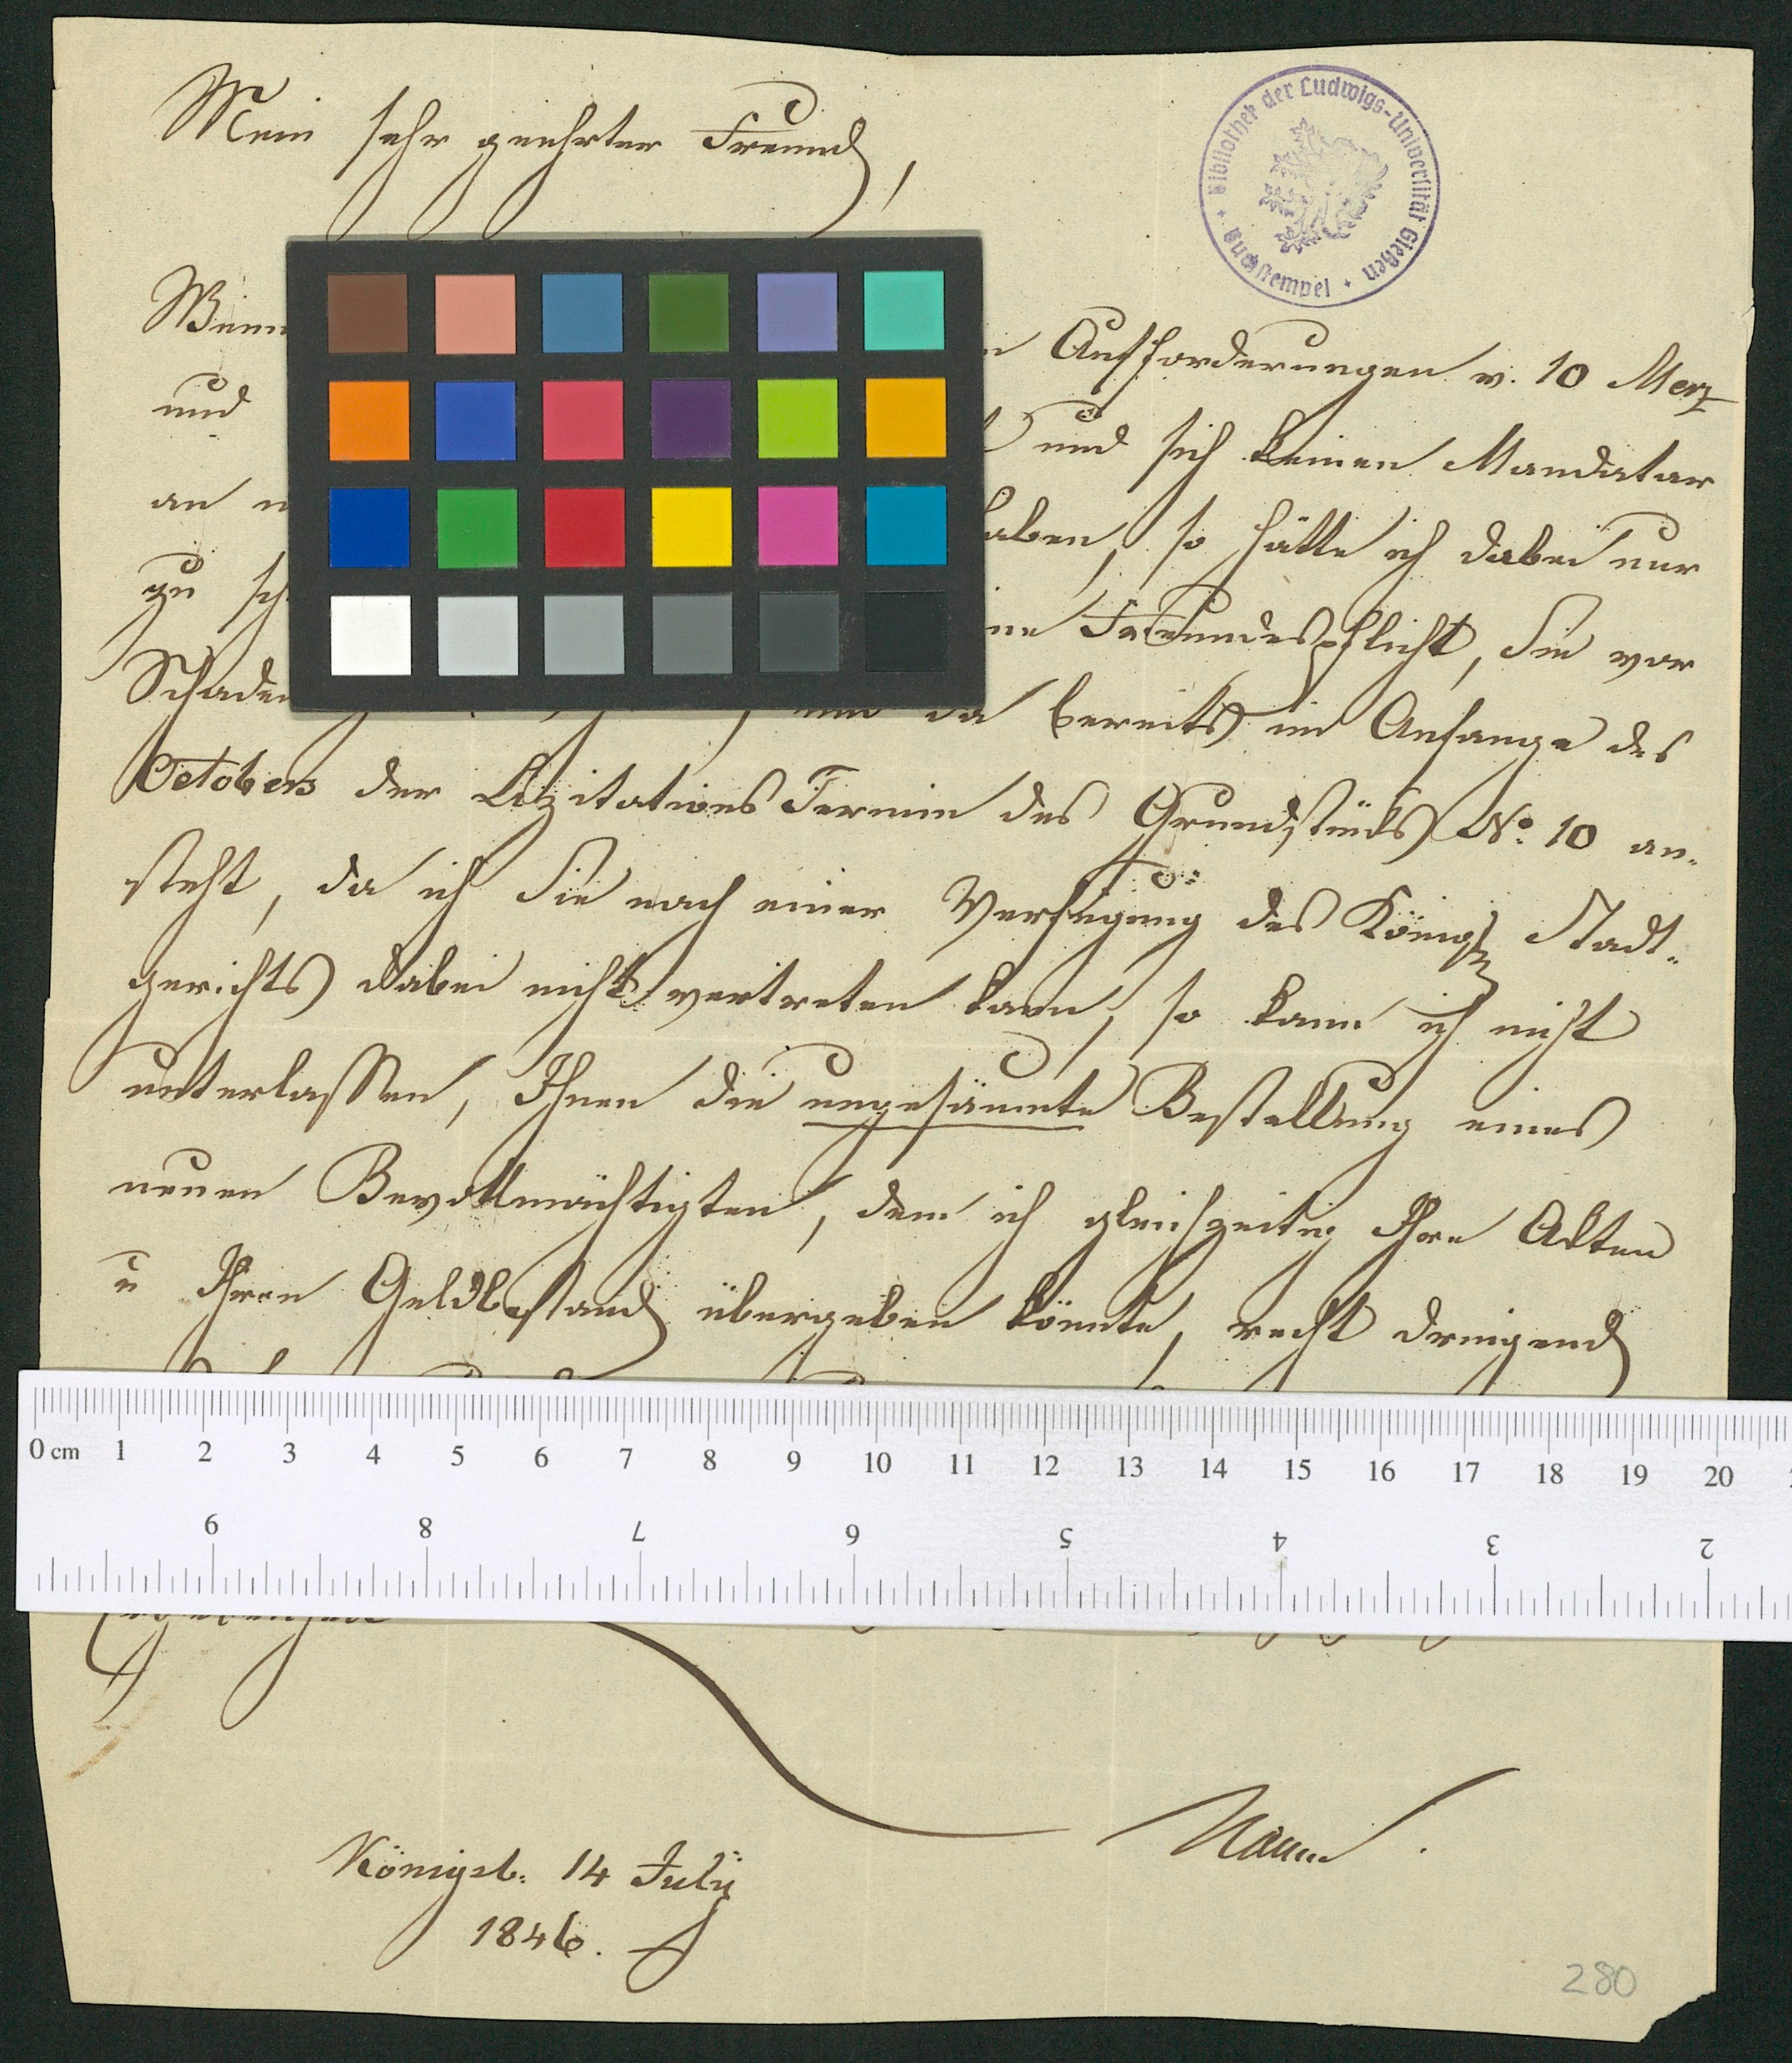 Mein sehr geehrter Freund,
Bibliothek der Ludwigs-Universität Gießen
Buchstempel
Wenn Aufforderungen v. 10 Merz
und und sich keinen Mandatar
an haben, so hätte ich dabei nur
zu Freundespflicht, Sie vor
Schaden und da bereits im Anfange des
Octobers der Lizitations Termin des Grundstücks No. 10 an-
steht, da ich Sie nach einer Verfügung des Königl Stadt-
gerichts dabei nicht vertreten kann, so kann ich nicht
unterlassen, Ihnen die ungesäumte Bestellung eines
neuen Bevollmächtigten, dem ich gleichzeitig Ihre Akten
u Ihren Geldbestand übergeben könnte, recht dringend
0 cm 1 2 3 4 5 6 7 8 9 10 11 12 13 14 15 16 17 18 19 20
9 8 7 6 5 4 3 2
Königsb: 14 July
1846.
280